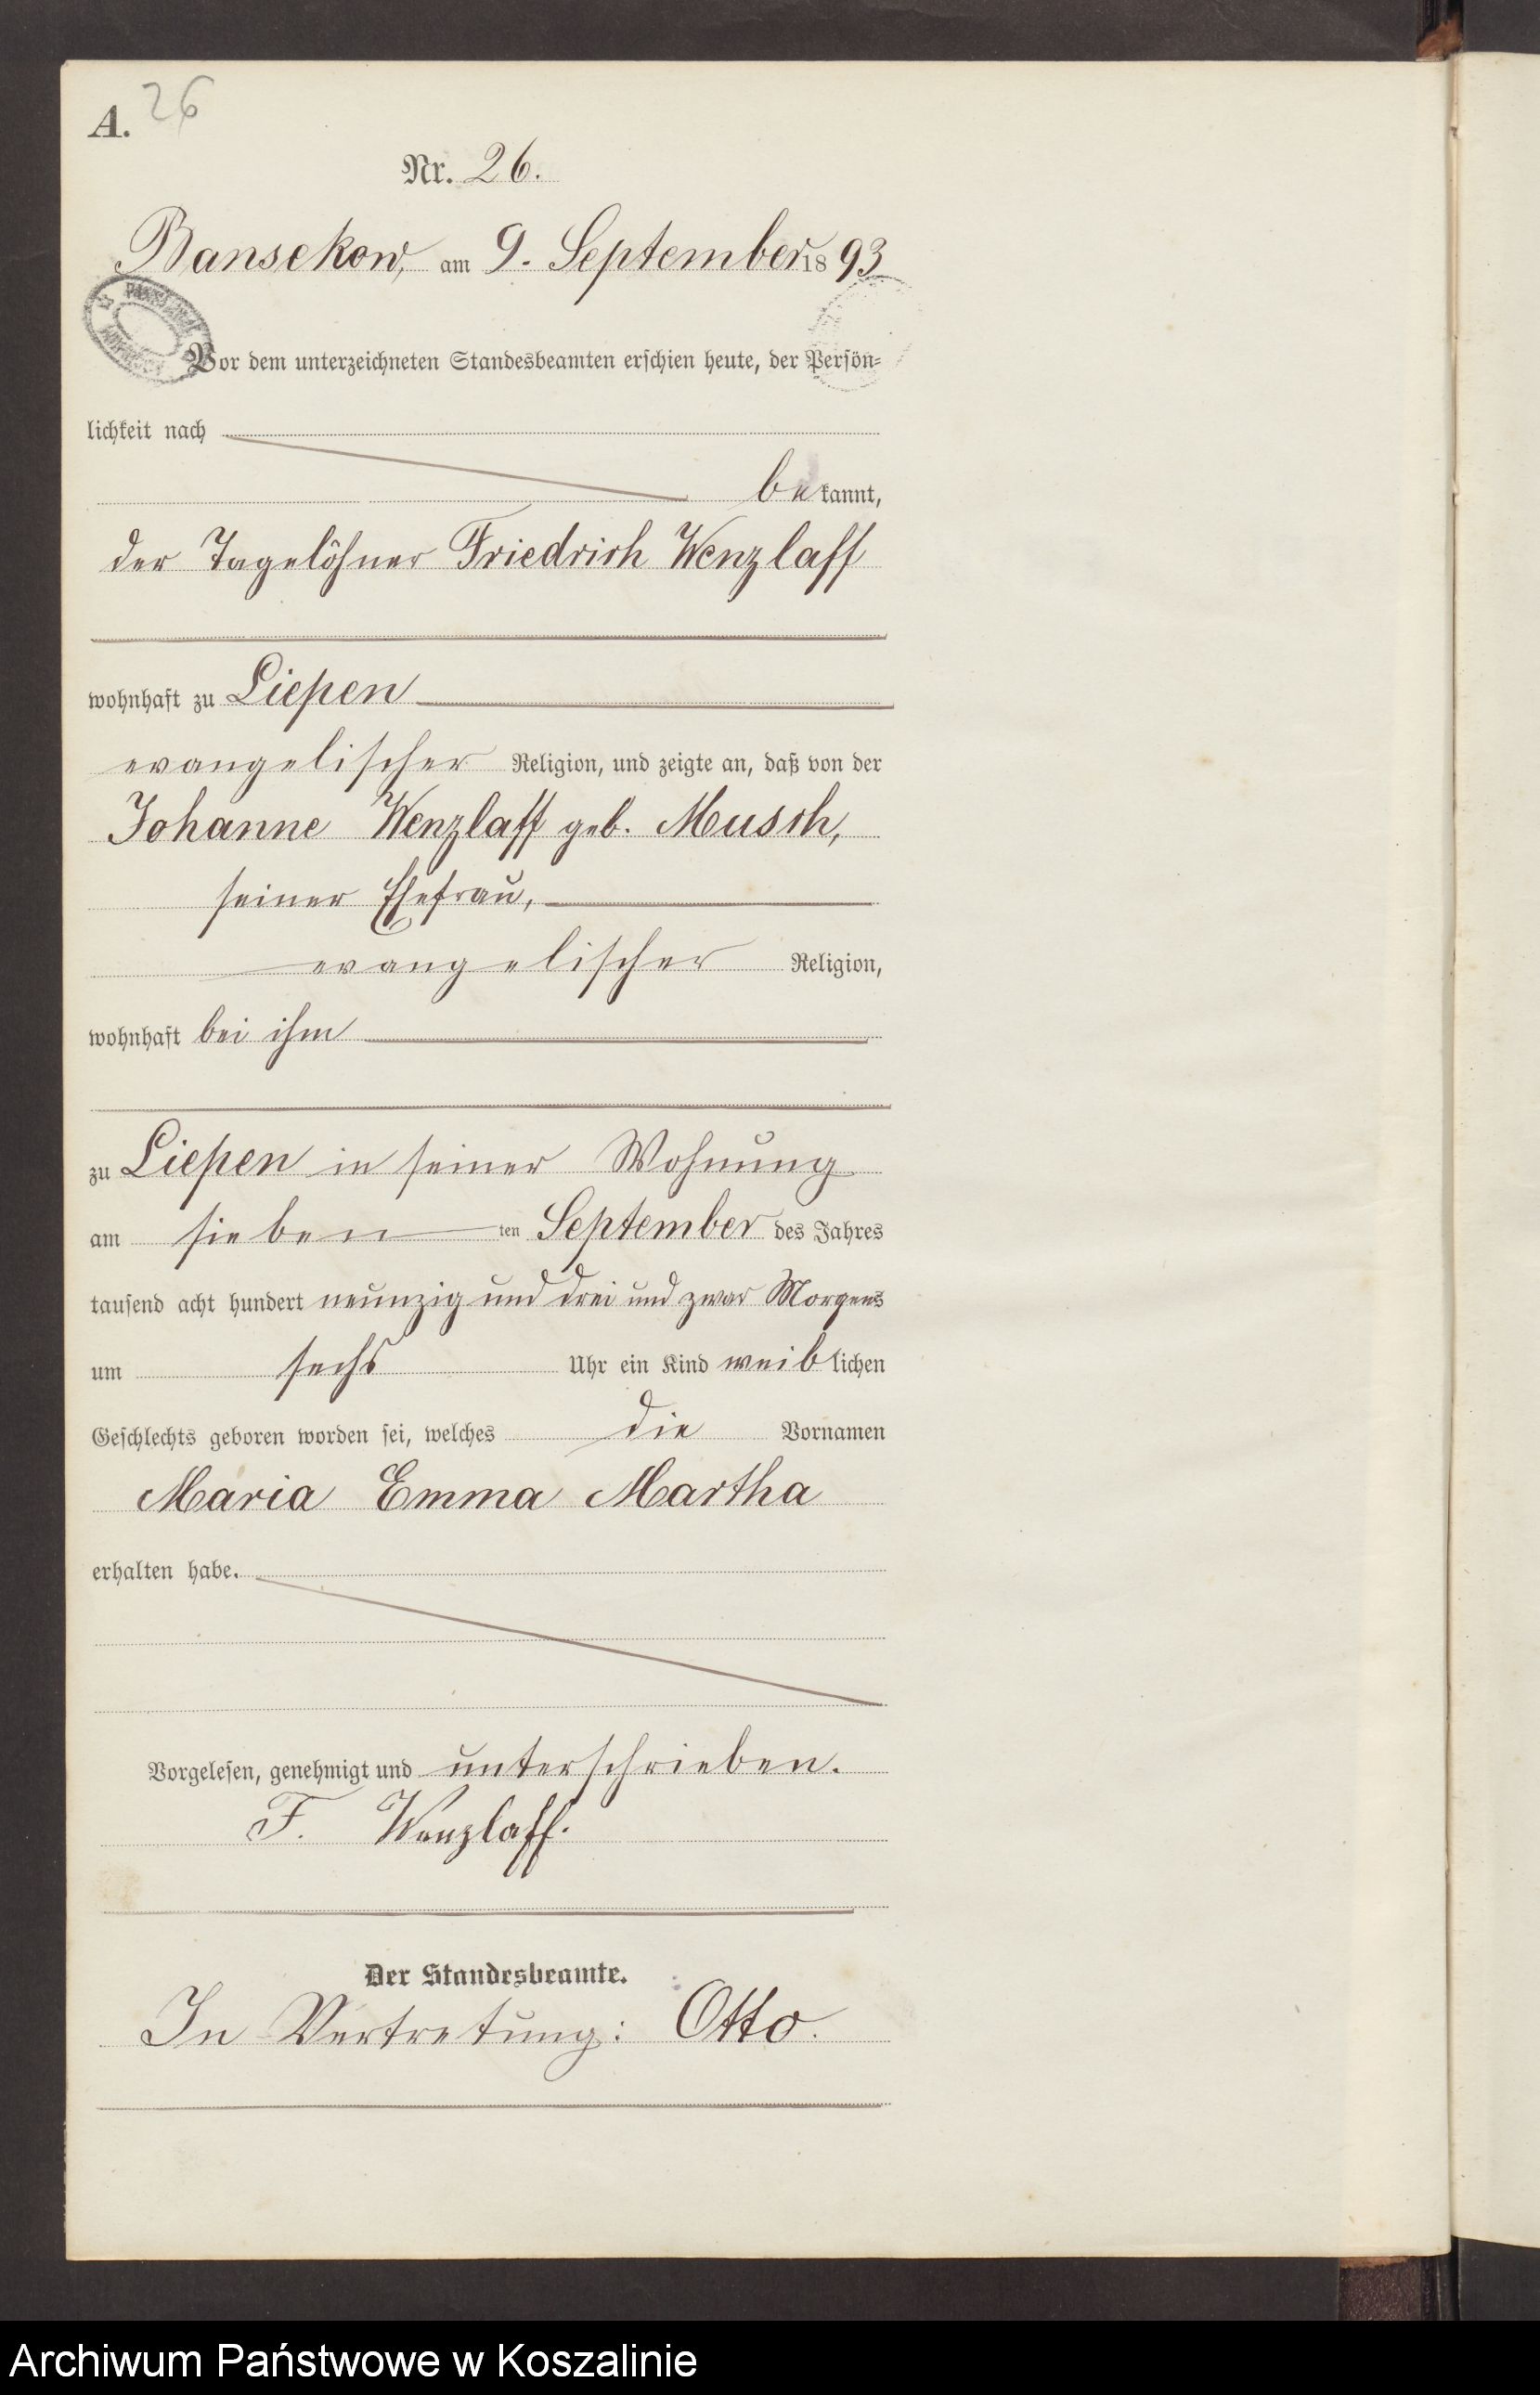 A. 26
Nr. 26.
Bansekow, am 9. September 1893
Vor dem unterzeichneten Standesbeamten erschien heute, der Persön=
lichkeit nach
bekannt,
der Tagelöhner Friedrich Wenzlaff
wohnhaft zu Liepen
evangelischer Religion, und zeigte an, daß von der
Johanne Wenzlaff geb. Musch,
seiner Ehefrau,
evangelischer Religion,
wohnhaft bei ihm
zu Liepen in seiner Wohnung
am sieben ten September des Jahres
tausend acht hundert neunzig und drei und zwar Morgens
um sechs Uhr ein Kind weiblichen
Geschlechts geboren worden sei, welches die Vornamen
Maria Emma Martha
erhalten habe.
Vorgelesen, genehmigt und unterschrieben.
F. Wenzlaff.
Der Standesbeamte.
In Vertretung: Otto.
Archiwum Państwowe w Koszalinie